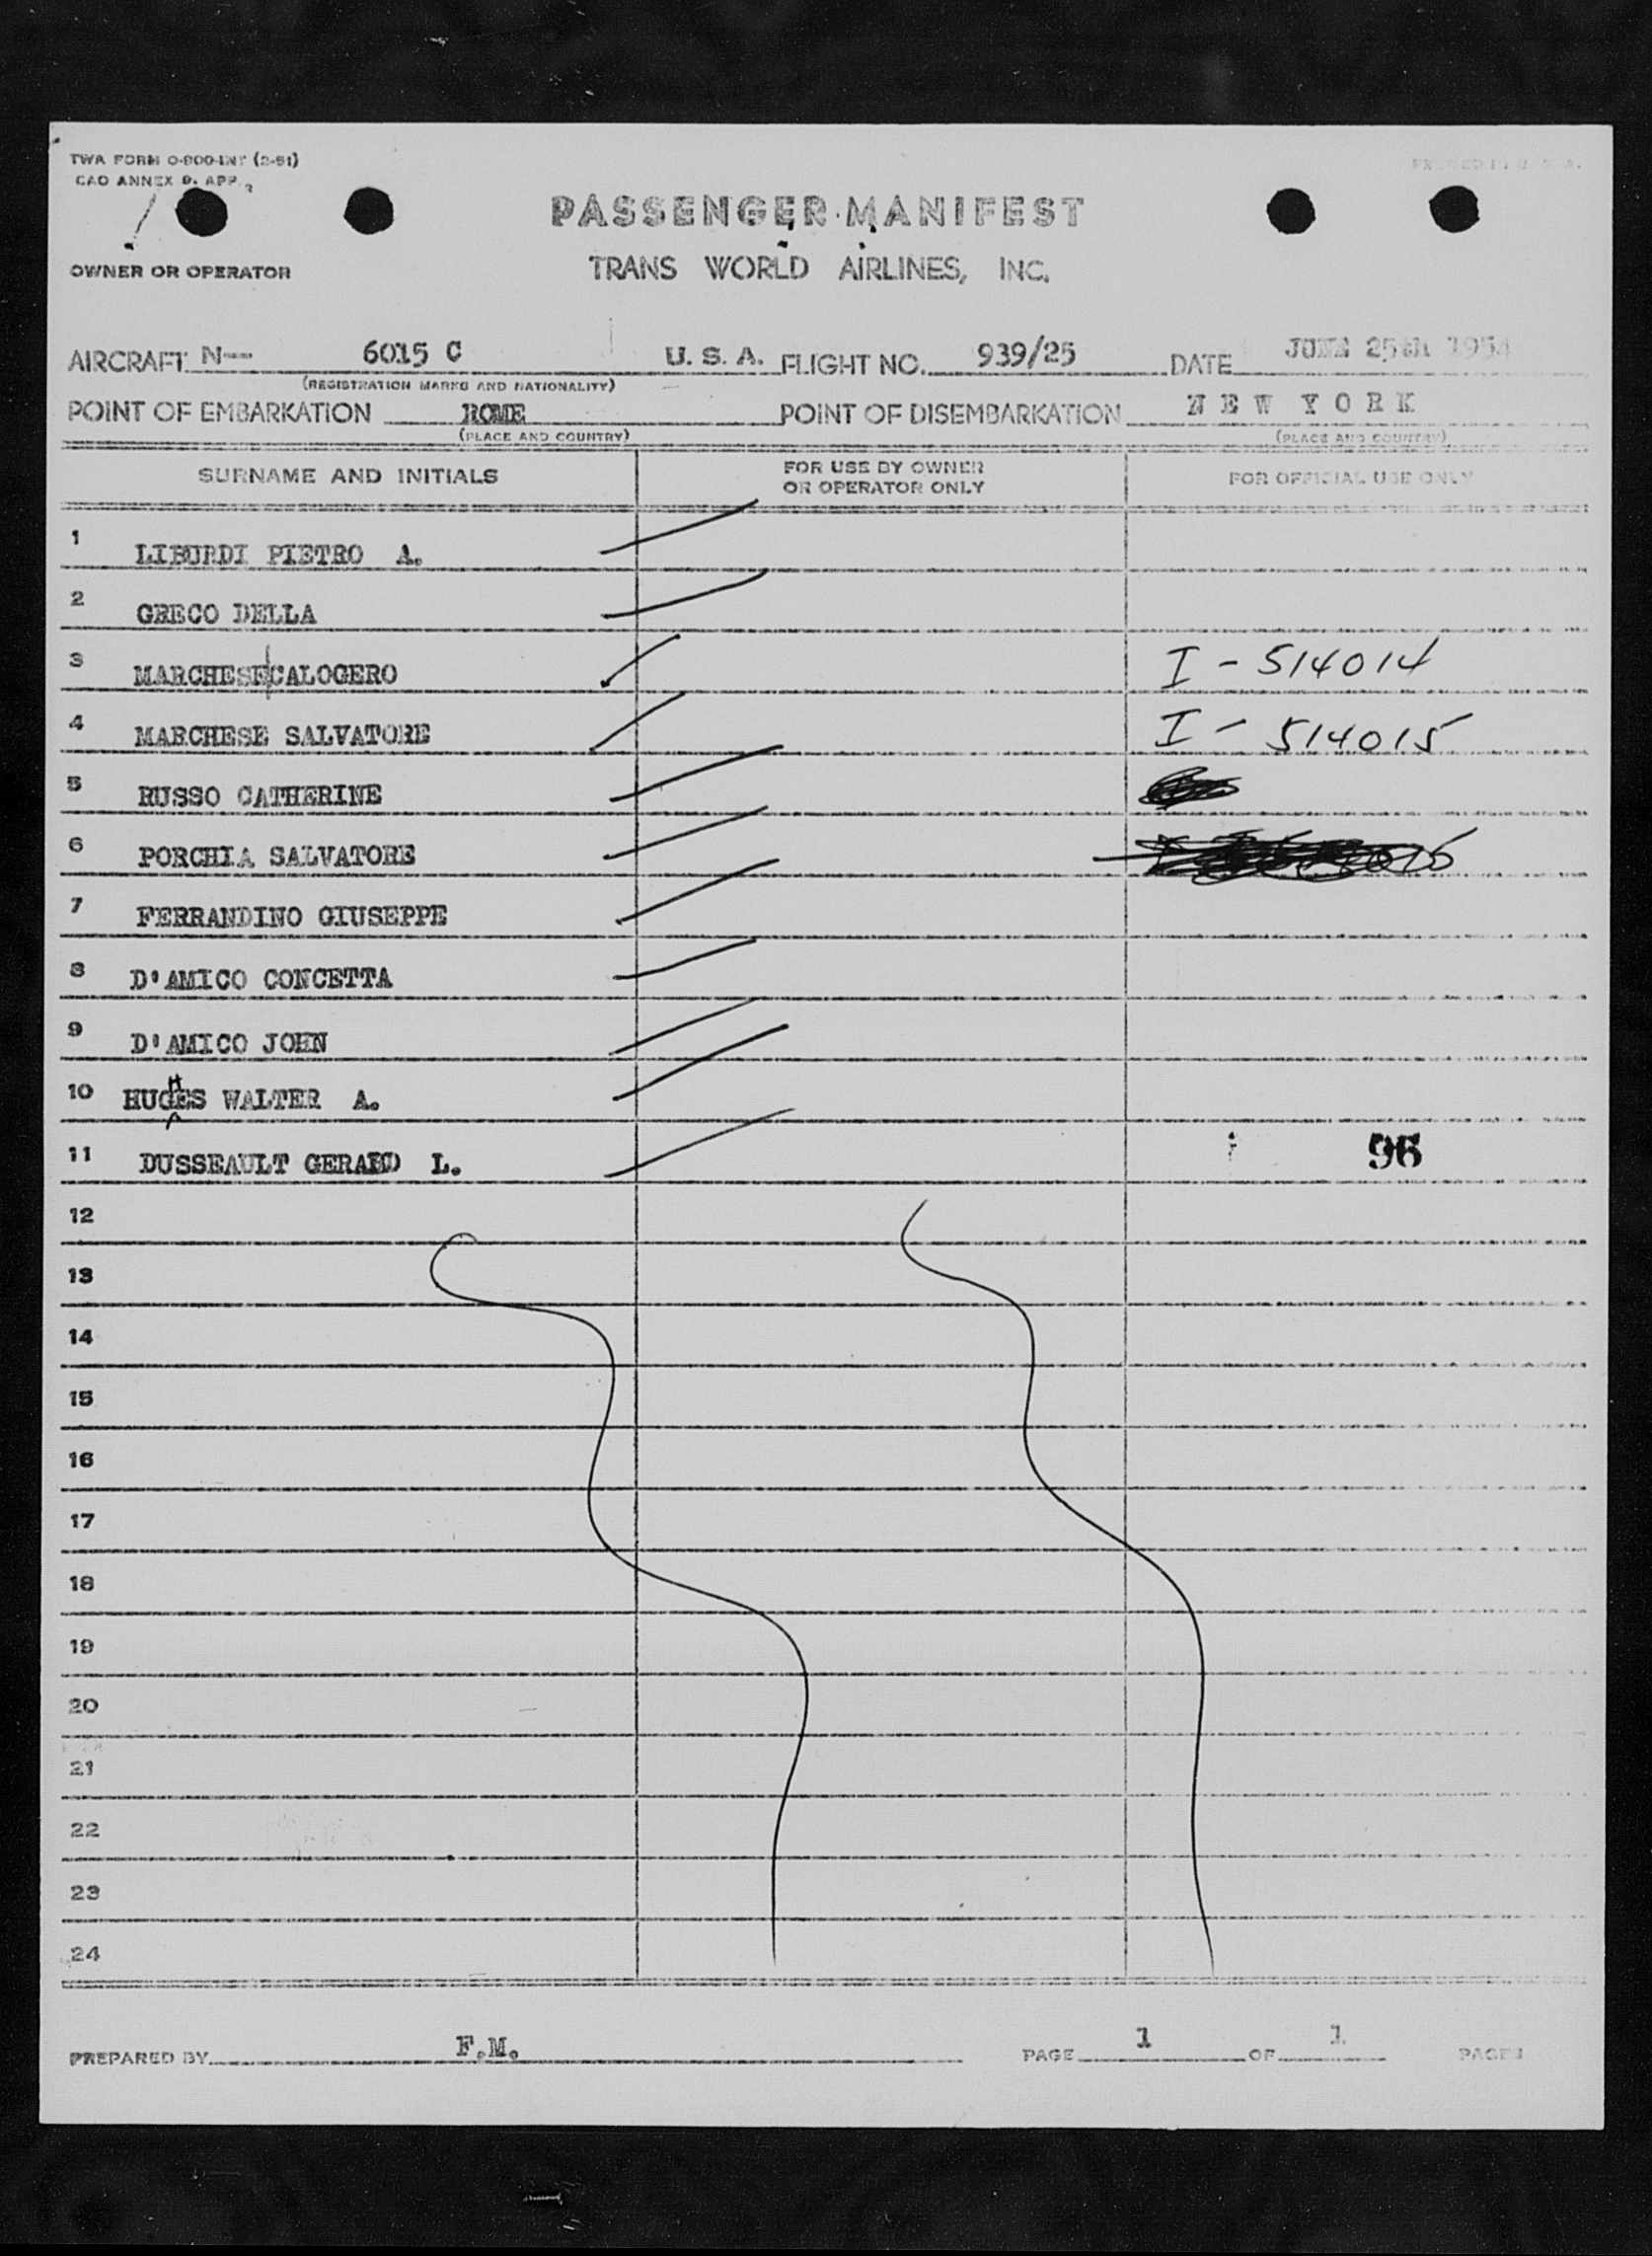 TWA FORM O-800-INT (2-51)
CAO ANNEX 9. APP. 3
PASSENGER MANIFEST
OWNER OR OPERATOR
TRANS WORLD AIRLINES, INC.
AIRCRAFT N-- 6015 C U. S. A. FLIGHT NO. 939/25 DATE JUNE 25th 1954
(REGISTRATION MARKS AND NATIONALITY)
POINT OF EMBARKATION ROME POINT OF DISEMBARKATION NEW YORK
(PLACE AND COUNTRY) (PLACE AND COUNTRY)
SURNAME AND INITIALS FOR USE BY OWNER OR OPERATOR ONLY FOR OFFICIAL USE ONLY
1 LIBURDI PIETRO A.
2 GRECO DELLA
3 MARCHESE/CALOGERO I - 514014
4 MARCHESE SALVATORE I - 514015
5 RUSSO CATHERINE
6 PORCHIA SALVATORE
7 FERRANDINO GIUSEPPE
8 D'AMICO CONCETTA
9 D'AMICO JOHN
10 HUGHES WALTER A.
11 DUSSEAULT GERARD L. 96
12
13
14
15
16
17
18
19
20
21
22
23
24
PREPARED BY F.M. PAGE 1 OF 1 PAGES